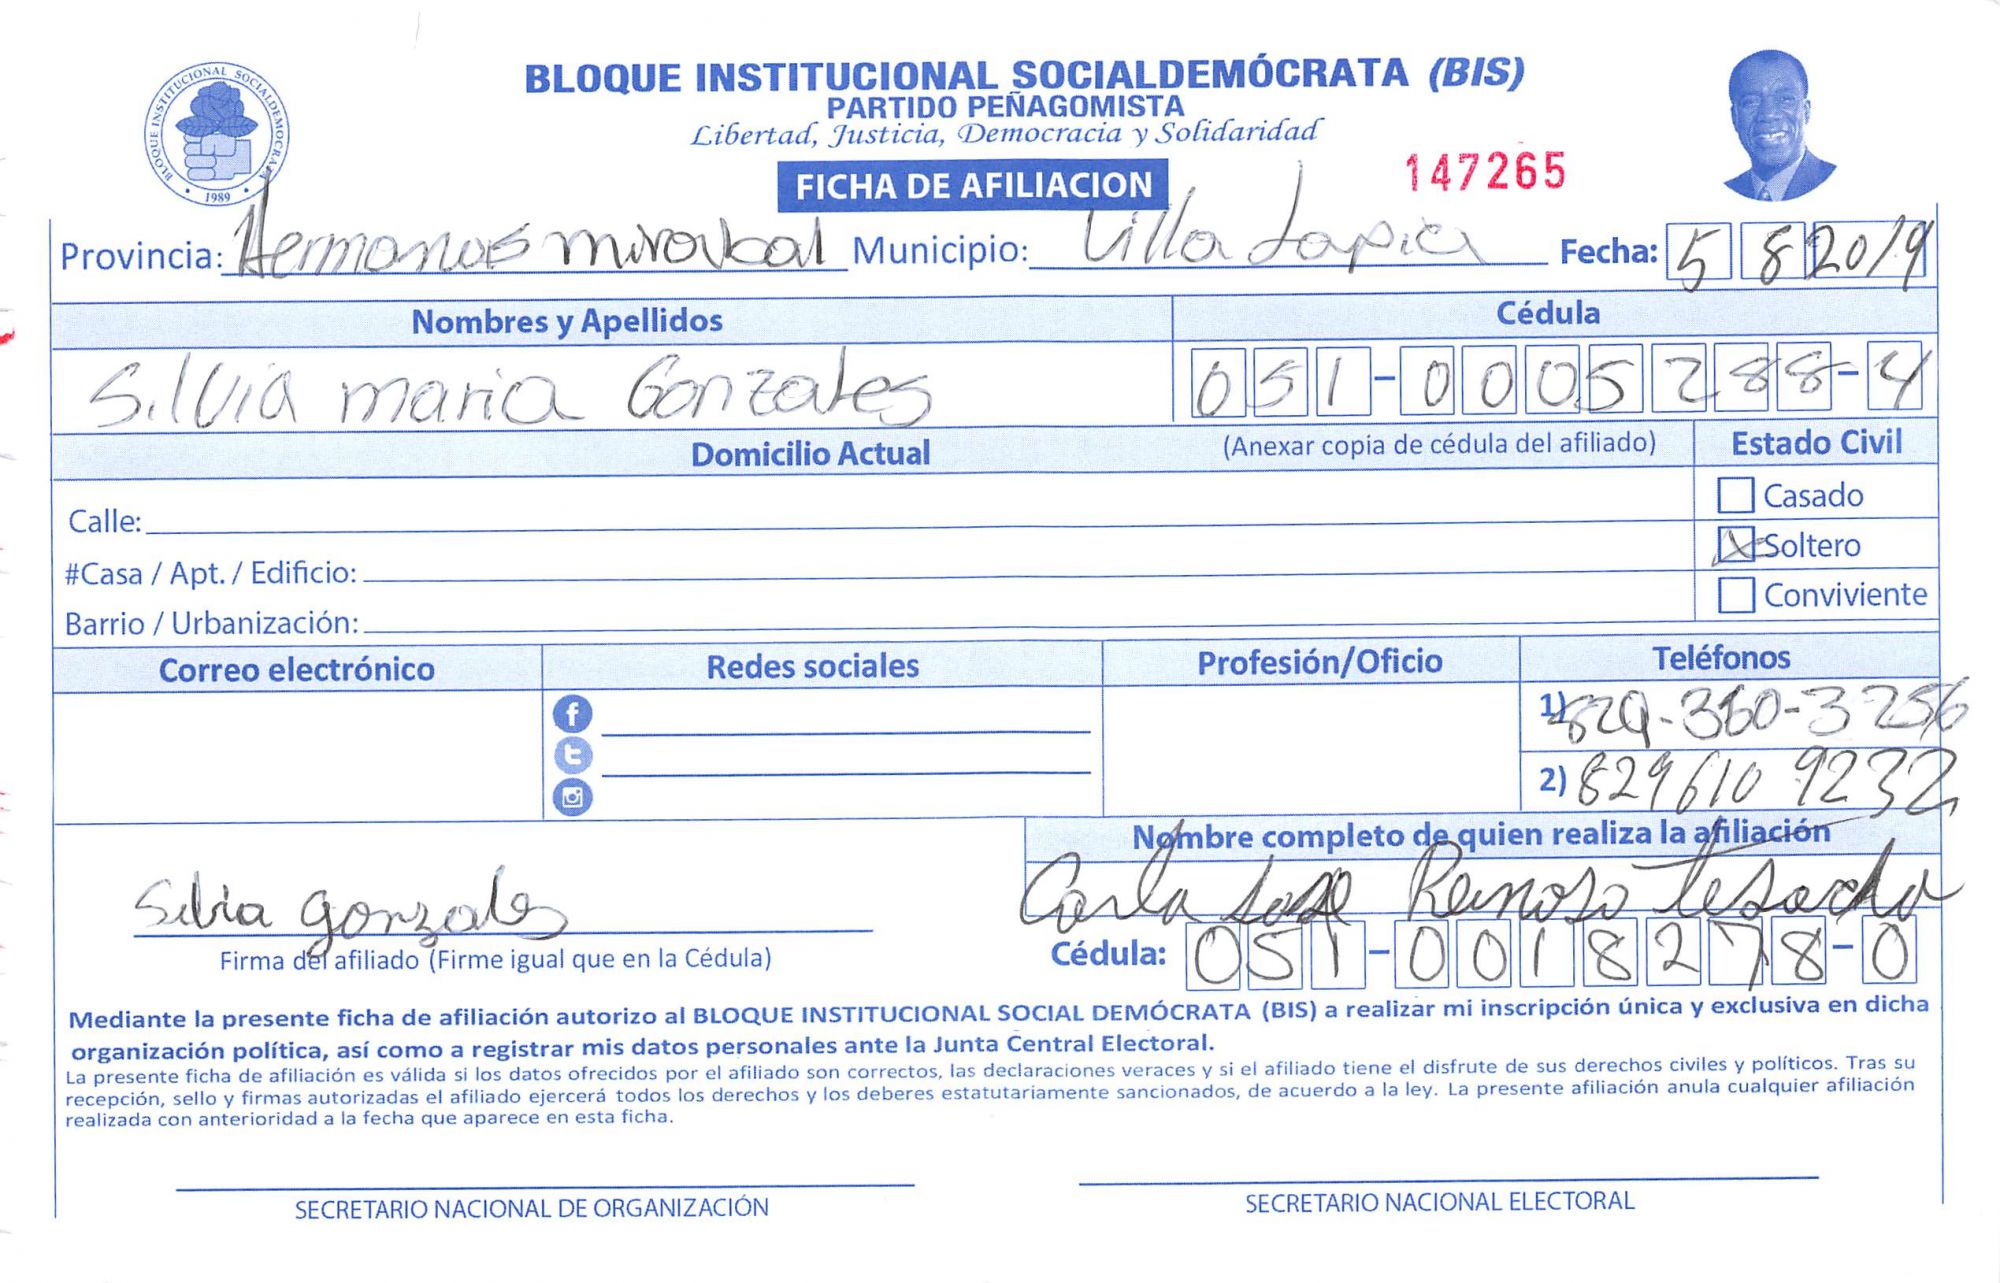 BLOQUE INSTITUCIONAL SOCIALDEMÓCRATA (BIS)
PARTIDO PEÑAGOMISTA
Libertad, Justicia, Democracia y Solidaridad
BLOQUE INSTITUCIONAL SOCIALDEMOCRATA
1989
FICHA DE AFILIACION
147265
Provincia: Hermanas mirabal Municipio: Villa Tapia Fecha: 5 8 2019
Nombres y Apellidos Cédula
Silvia maria Gonzales 051-0005288-4
Domicilio Actual (Anexar copia de cédula del afiliado) Estado Civil
Casado
Calle:
X Soltero
#Casa / Apt. / Edificio:
Conviviente
Barrio / Urbanización:
Correo electrónico Redes sociales Profesión/Oficio Teléfonos
1) 829-360-3256
2) 829 610 9232
Nombre completo de quien realiza la afiliación
Carla Jose Reinoso
Silvia gonzales
Cédula: 051-0018278-0
Firma del afiliado (Firme igual que en la Cédula)
Mediante la presente ficha de afiliación autorizo al BLOQUE INSTITUCIONAL SOCIAL DEMÓCRATA (BIS) a realizar mi inscripción única y exclusiva en dicha
organización política, así como a registrar mis datos personales ante la Junta Central Electoral.
La presente ficha de afiliación es válida si los datos ofrecidos por el afiliado son correctos, las declaraciones veraces y si el afiliado tiene el disfrute de sus derechos civiles y políticos. Tras su
recepción, sello y firmas autorizadas el afiliado ejercerá todos los derechos y los deberes estatutariamente sancionados, de acuerdo a la ley. La presente afiliación anula cualquier afiliación
realizada con anterioridad a la fecha que aparece en esta ficha.
SECRETARIO NACIONAL DE ORGANIZACIÓN SECRETARIO NACIONAL ELECTORAL